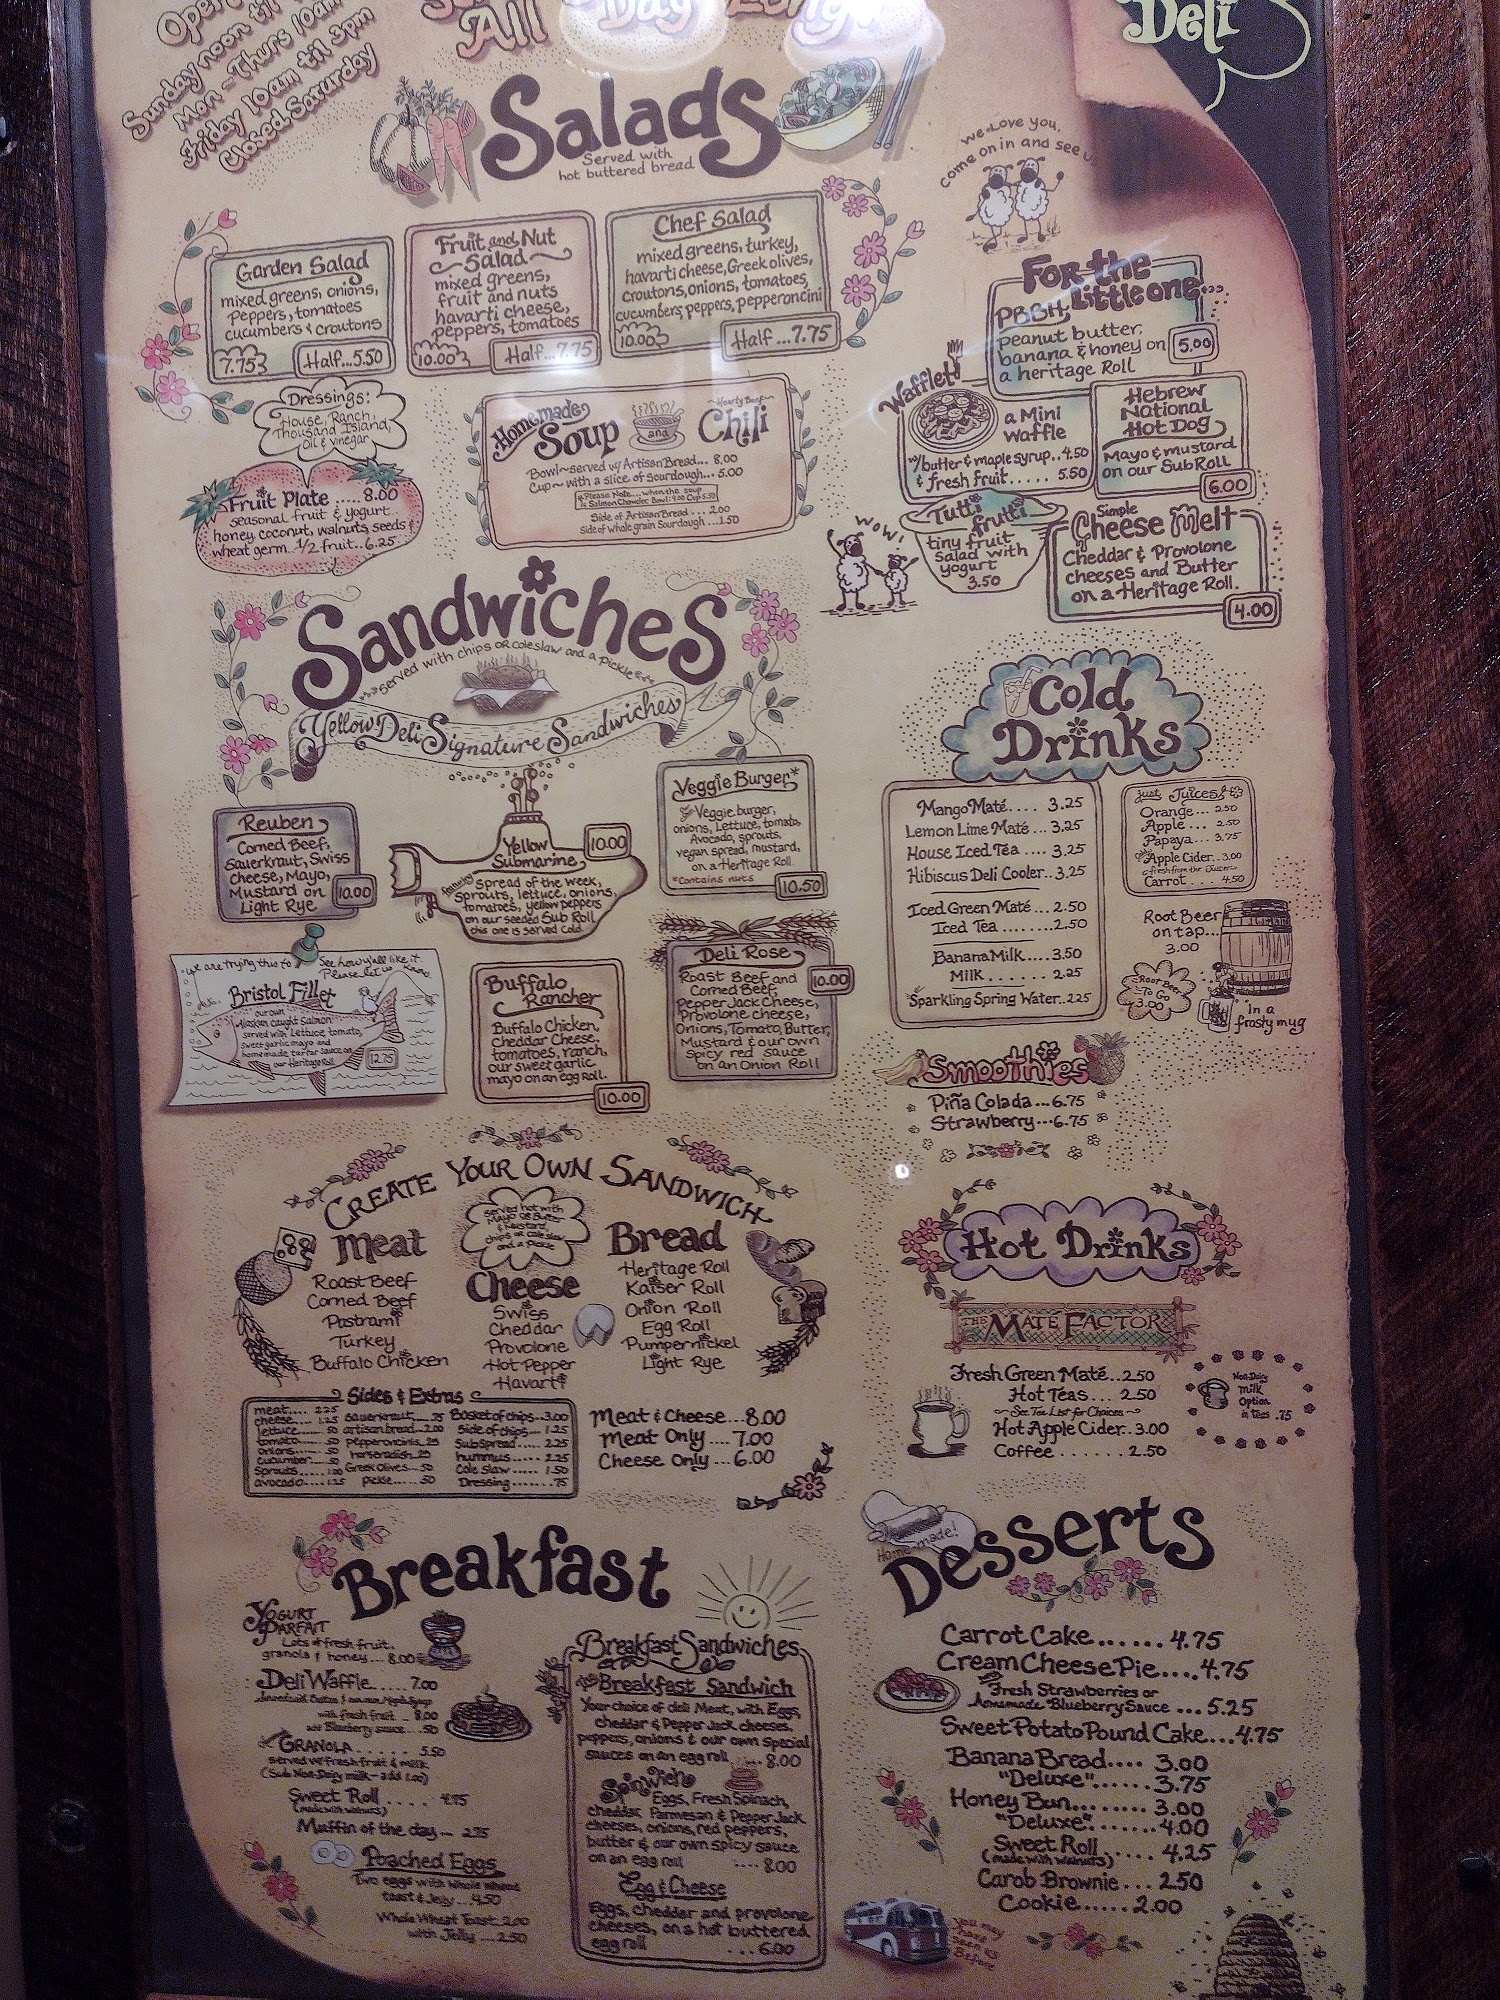 Sunday noon til
Mon-Thurs 10am
Friday 10am til 3pm
Closed Saturday
All Day Long
Deli
Salads
Served with
hot buttered bread
We Love you,
Come on in and see
Garden Salad
mixed greens, onions,
peppers, tomatoes
cucumbers & croutons
7.75
Half...5.50
Fruit and Nut
Salad
mixed greens,
fruit and nuts
havarti cheese,
peppers, tomatoes
10.00
Half...7.75
Chef Salad
mixed greens, turkey,
havarti cheese, Greek olives,
croutons, onions, tomatoes,
cucumbers, peppers, pepperoncini
10.00
Half...7.75
Dressings:
House, Ranch,
Thousand Island,
Oil & vinegar
Fruit Plate .....8.00
seasonal fruit & yogurt
honey, coconut, walnuts, seeds &
wheat germ 1/2 fruit..6.25
Homemade
Soup
and
Hearty Beef
Chili
Bowl~served w/ Artisan Bread... 8.00
Cup~ with a slice of sourdough... 5.00
*Please Note....when the soup
is Salmon Chowder Bowl: 9.00 Cup 5.50
Side of Artisan Bread .... 2.00
Side of whole grain Sourdough ...1.50
For the
Little one...
PBBH
peanut butter,
banana & honey on
a heritage Roll
5.00
Wafflet!
a Mini
Waffle
w/butter & maple syrup..4.50
& fresh fruit..... 5.50
Hebrew
National
Hot Dog
Mayo & mustard
on our Sub Roll
6.00
Wow!
Tutti
frutti
tiny fruit
salad with
yogurt
3.50
Simple
Cheese Melt
Cheddar & Provolone
cheeses and Butter
on a Heritage Roll.
4.00
Sandwiches
served with chips or coleslaw and a Pickle
Yellow Deli Signature Sandwiches
Reuben
Corned Beef,
Sauerkraut, Swiss
Cheese, Mayo,
Mustard on
Light Rye
10.00
Yellow
Submarine
10.00
featuring Spread of the week,
Sprouts, lettuce, onions,
tomatoes, yellow peppers
on our seeded Sub Roll
this one is served cold.
Veggie Burger*
Veggie burger,
onions, Lettuce, tomato,
Avocado, sprouts,
vegan spread, mustard,
on a Heritage Roll
*Contains nuts
10.50
we are trying this to see how y'all like it.
Please let us know.
Bristol Fillet
our own
Alaskan caught Salmon
served with Lettuce, tomato,
sweet garlic mayo and
homemade tartar sauce on
our Heritage Roll
12.75
Buffalo
Rancher
Buffalo Chicken,
Cheddar Cheese,
tomatoes, ranch,
our sweet garlic
mayo on an egg Roll.
10.00
Deli Rose
10.00
Roast Beef and
Corned Beef,
Pepper Jack Cheese,
Provolone cheese,
Onions, Tomato, Butter,
Mustard & our own
spicy red sauce
on an Onion Roll
Cold
Drinks
Mango Maté.... 3.25
Lemon Lime Maté ... 3.25
House Iced Tea .... 3.25
Hibiscus Deli Cooler.. 3.25
Iced Green Maté... 2.50
Iced Tea .......2.50
Banana Milk....3.50
Milk ....... 2.25
Sparkling Spring Water..2.25
Just Juices!
Orange.... 2.50
Apple.... 2.50
Papaya.... 3.75
Apple Cider.. 3.00
Carrot .... 4.50
Root Beer
on tap...
3.00
Root Beer
To Go
3.00
in a
frosty mug
Smoothies
Piña Colada...6.75
Strawberry...6.75
Create Your Own Sandwich
served hot with
Mayo or Butter
& Mustard,
chips or cole slaw
and a pickle
Meat
Roast Beef
Corned Beef
Pastrami
Turkey
Buffalo Chicken
Cheese
Swiss
Cheddar
Provolone
Hot Pepper
Havarti
Bread
Heritage Roll
Kaiser Roll
Onion Roll
Egg Roll
Pumpernickel
Light Rye
Sides & Extras
meat.... 2.25
cheese.... 1.25
lettuce.... .50
tomato.... .50
onions.... .50
cucumber.... .50
Sprouts.... 1.00
avocado.... 1.25
Sauerkraut.. .75
artisan bread..2.00
pepperoncinis .25
horseradish .25
Greek Olives.. .50
pickle..... .50
Basket of chips..3.00
Side of chips... 1.25
Sub Spread.... 2.25
hummus...... 2.25
Cole Slaw..... 1.50
Dressing....... .75
Meat & Cheese...8.00
Meat Only ....7.00
Cheese Only ...6.00
Hot Drinks
The Maté Factor
Fresh Green Maté..2.50
Hot Teas... 2.50
~See Tea List for Choices~
Hot Apple Cider..3.00
Coffee ....... 2.50
Non-Dairy
Milk
Option
in teas .75
Breakfast
Yogurt
Parfait
Lots of fresh fruit,
granola & honey ... 8.00
Deli Waffle.......7.00
with fresh fruit .. 8.00
add Blueberry sauce....50
Granola ....... 5.50
served w/fresh fruit & milk
(Sub Non-Dairy milk - add 1.00)
Sweet Roll .... 4.25
(made with walnuts)
Muffin of the day... 2.75
Poached Eggs
Two eggs with Whole Wheat
toast & Jelly ...4.50
Whole Wheat Toast..2.00
with Jelly ...2.50
Breakfast Sandwiches
Breakfast Sandwich
Your choice of deli Meat, with Eggs,
cheddar & Pepper Jack cheeses,
peppers, onions & our own special
sauces on an egg roll .... 8.00
Spinwich
Eggs, Fresh Spinach,
cheddar, Parmesan & Pepper Jack
cheeses, onions, red peppers,
butter & our own spicy sauce
on an egg roll .... 8.00
Egg & Cheese
Eggs, cheddar and provolone
cheeses, on a hot buttered
egg roll ... 6.00
Home-made!
Desserts
Carrot Cake....... 4.75
Cream Cheese Pie....4.75
Fresh Strawberries or
homemade Blueberry Sauce ... 5.25
Sweet Potato Pound Cake...4.75
Banana Bread.... 3.00
"Deluxe"...... 3.75
Honey Bun........ 3.00
"Deluxe"........4.00
Sweet Roll ..... 4.25
(made with walnuts)
Carob Brownie... 2.50
Cookie......2.00
You may
have
seen us
Before